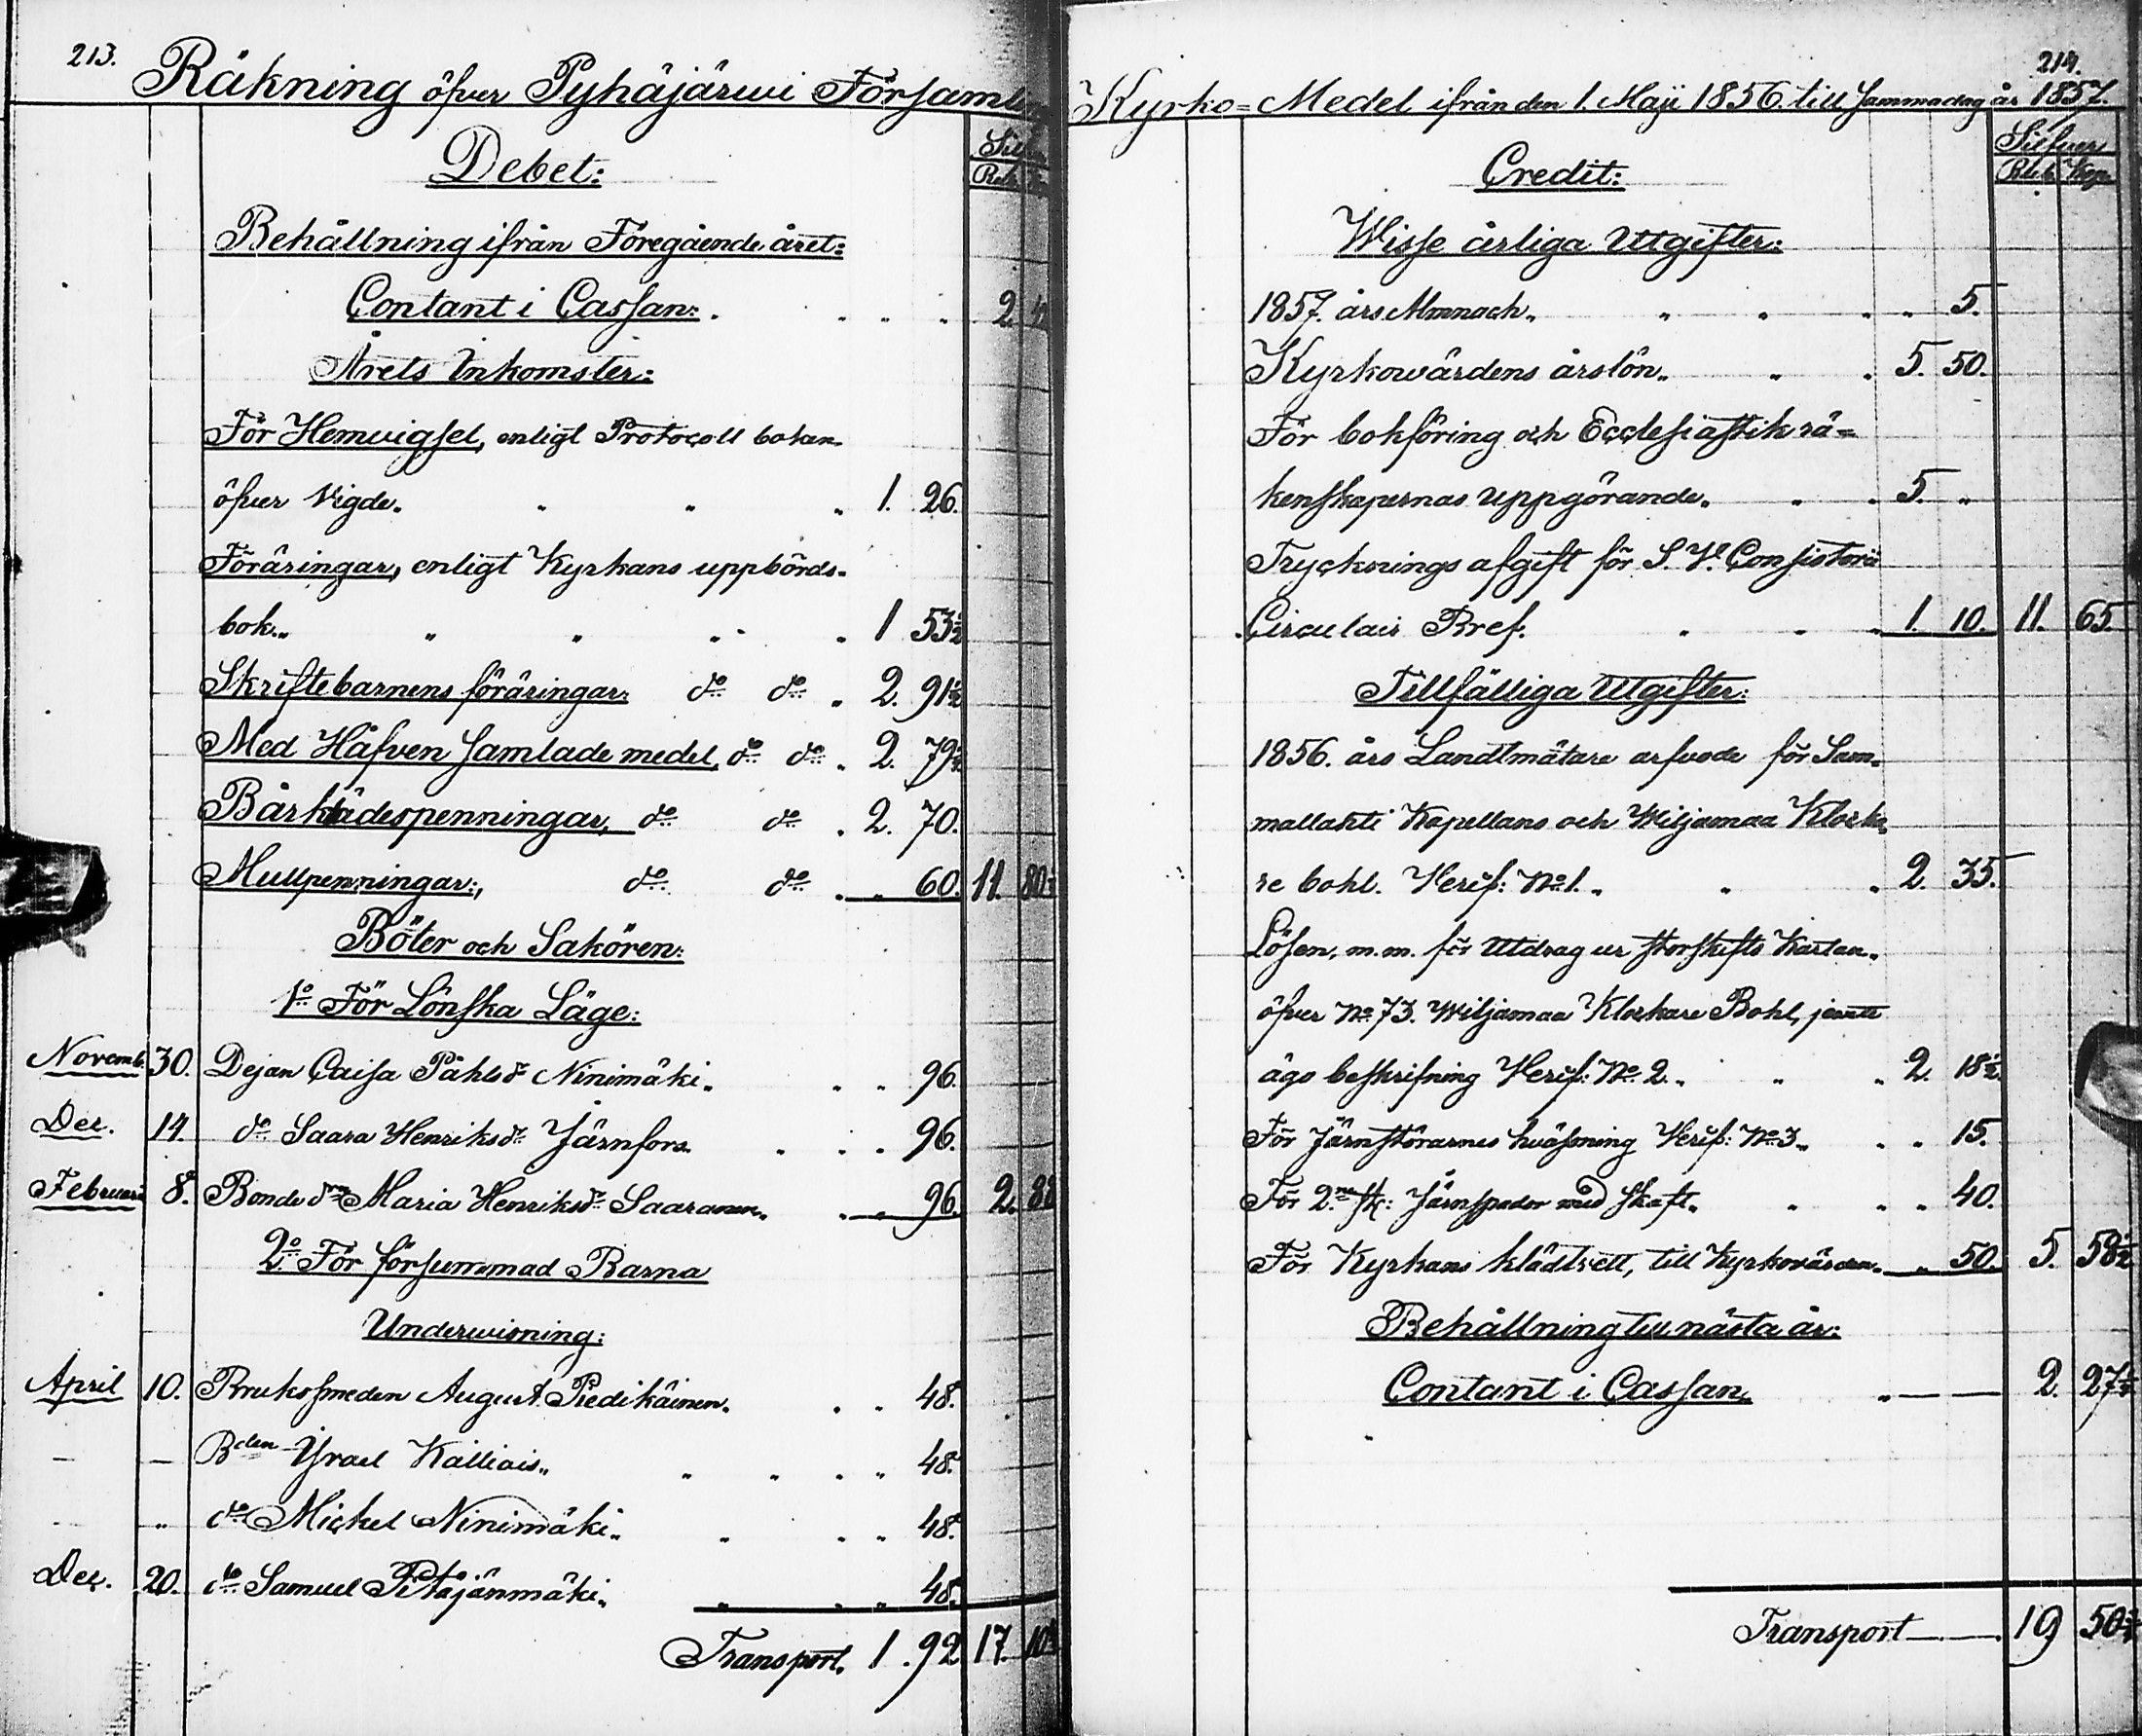 213.
Räkning öfver Pyhäjärwi Församl
Debet:
Behållning ifrån Föregående året:
Contant i Cassan: 2.
Årets Inkomster:
För Hemvigsel, enligt Protocoll boken
öfver Vigde. 1. 26.
Föräringar, enligt Kyrkans uppbörds-
bok. 1 53½
Skriftebarnens föräringar: do do 2. 91½
Med Håfven samlade medel, do do 2. 79
Bårklädespenningar, do do 2. 70.
Mullpenningar:, do do 60. 11. 80
Böter och Sakören:
1o För Lönska Läge:
Novemb. 30. Dejan Caisa Påhlsdr Ninimäki. 96.
Dec. 14. do Saara Henriksdr Järnfors. 96.
Februari 8. Bonde Maria Henriksdr Saaranen. 96. 2. 88
2o För försummad Barna
Underwisning:
April 10. Bruksmeden August Piedikäinen. 48.
— — Bden Israel Kalliais. 48.
— „ do Mickel Ninimäki. 48.
Dec. 20. do Samuel Petäjänmäki. 48.
Transport. 1. 92 17. 10
214.
Kyrko=Medel ifrån den 1. Maji 1856. till samma dag år 1857.
Silfver
Credit: Rbl. Kop.
Wisse årliga Utgifter:
1857. års Almnach. 5.
Kyrkowärdens årslön. 5. 50.
För bokföring och Ecclesiastik rä=
kenskapernas uppgörande. 5. „
Trycknings afgift för S. V. Consistorii
Circulair Bref. 1. 10. 11. 65
Tillfälliga Utgifter:
1856. års Landtmätare arfvode för Sam-
mallahti Kapellans och Wiljamaa Klocka
re bohl. Verif: No 1. 2. 35.
Lösen, m.m. för Utdrag ur Storskifts Kartan
öfver No 73. Wiljamaa Klockare Bohl, jemte
ägo beskrifning Verif: No 2. 2. 18½
För Järnstörarnes hväsning Verif: No 3. 15.
För 2ne st: Järnspador med skaft. 40.
För Kyrkans klädtvett, till Kyrkovärden. 50. 5. 58½
Behållning till nästa år:
Contant i Cassan. 2. 27
Transport 19 50